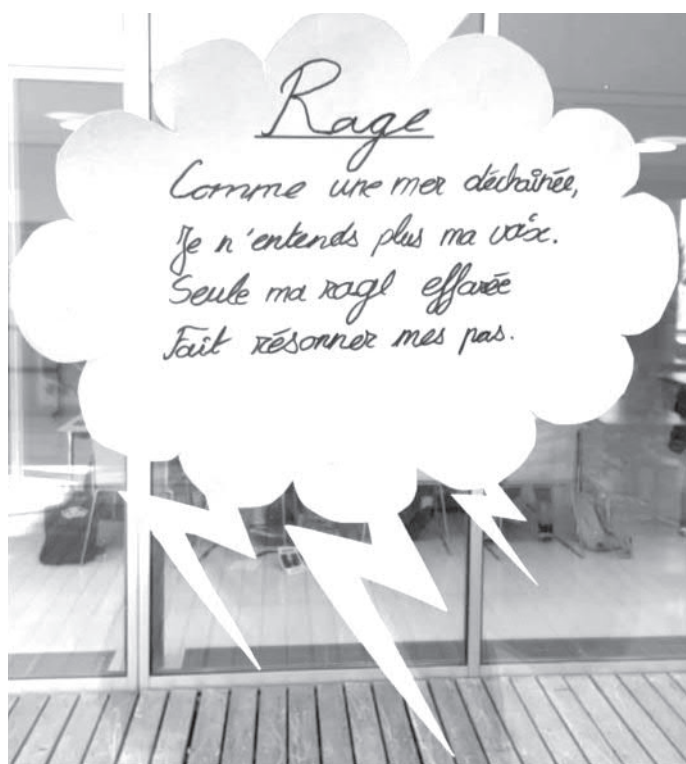 Rage
Comme une mer déchaînée,
Je n'entends plus ma voix.
Seule ma rage effarée
Fait résonner mes pas.